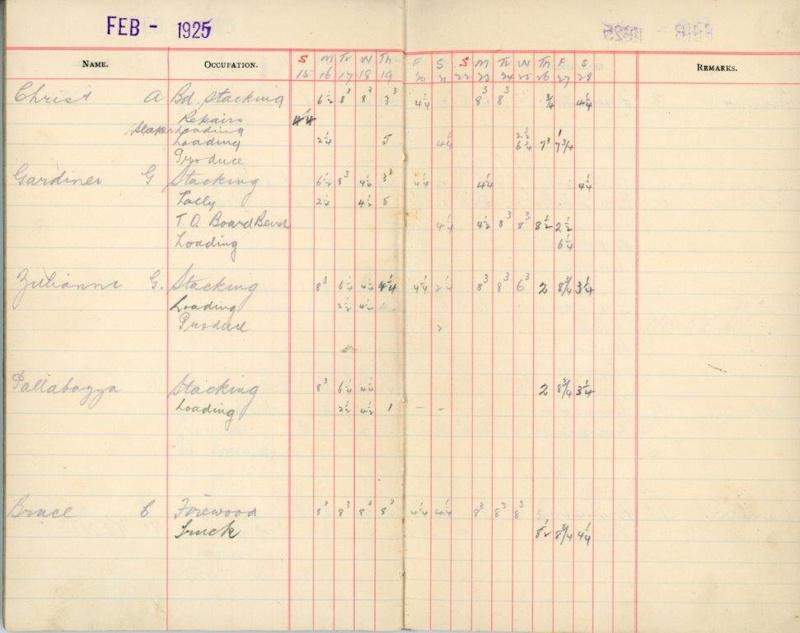 FEB - 1925
NAME. OCCUPATION. S M Tu W Th F S S M Tu W Th F S REMARKS.
15 16 17 18 19 20 21 22 23 24 25 26 27 28
Christ A Bd. Stacking 6½ 8³ 8³ 3³ 4¼ 8³ 8³ ¾ 4¼
Repairs
Loading
Loading 2¼ 5 4¼ 6¼ 7³ 7¾
Produce
Gardiner G Stacking 6½ 8³ 4½ 3³ 4¼ 4¼ 4¼
Tally 2¼ 4½ 5
T.O. Board Bend 4¼ 4½ 8³ 8³ 8½ 2½
Loading 6¼
Zulianni G. Stacking 8³ 6¼ 4¼ 4¼ 4¼ 2¼ 8³ 8³ 6³ 2 8¾ 3¼
Loading 2½ 4½
Produce 2
Pallabazza Stacking 8³ 6¼ 4¼ 2 8¾ 3¼
Loading 2½ 4½ 1 - -
Bruce C Firewood 8³ 8³ 8³ 8³ 4¼ 4¼ 8³ 8³ 8³
Truck 8½ 8¾ 4¼